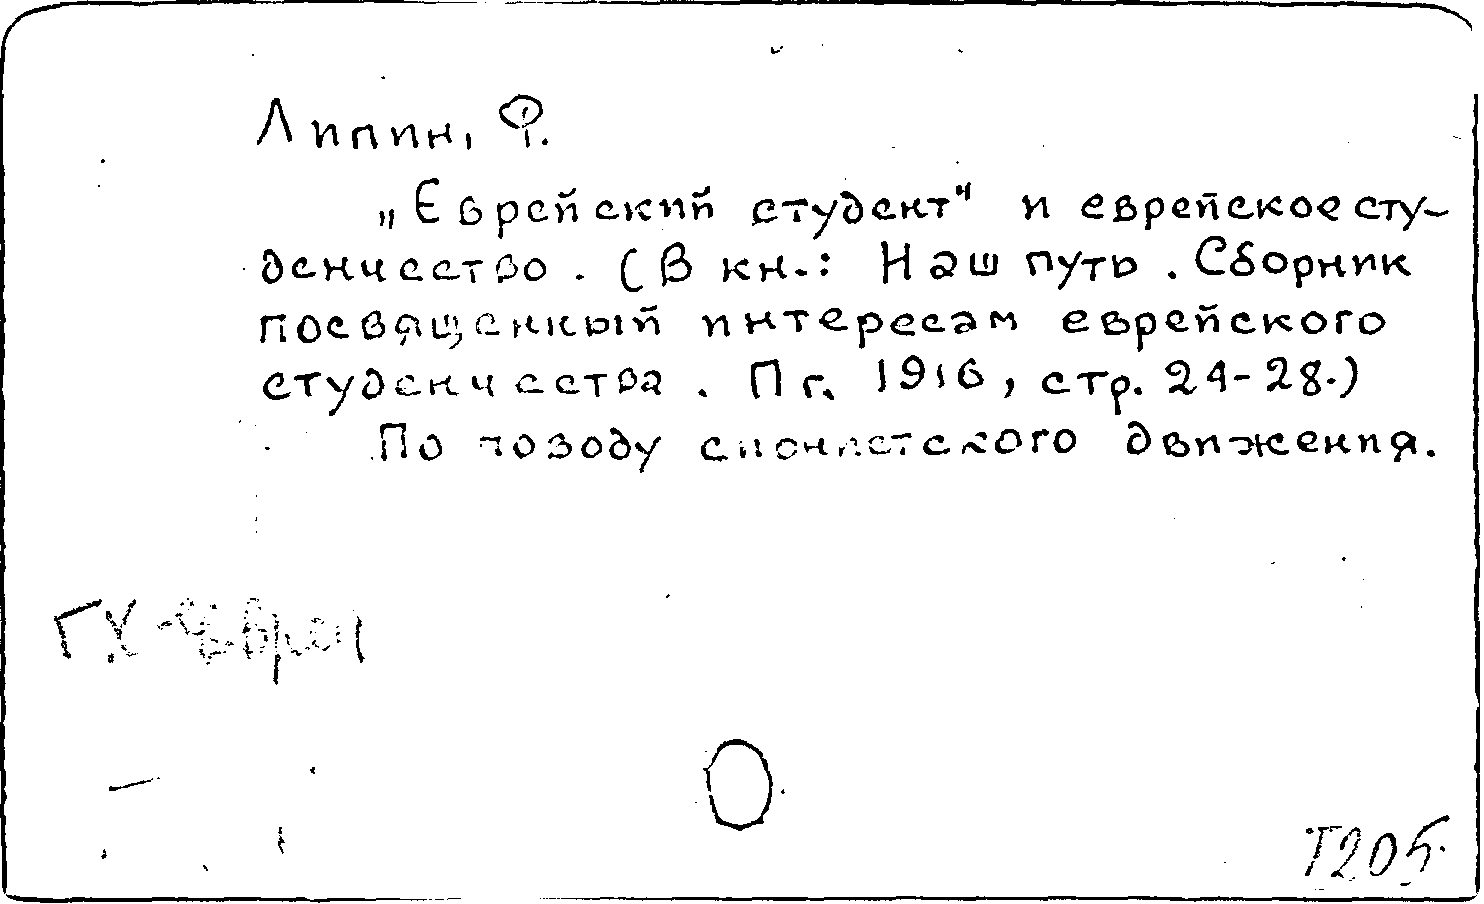 Липин, Ф.
„Еврейский студент" и еврейское сту-
денчество. (В кн.: Наш путь. Сборник
посвященный интересам еврейского
студенчества. Пг. 1916, стр. 24-28.)
По поводу сионистского движения.
Т205